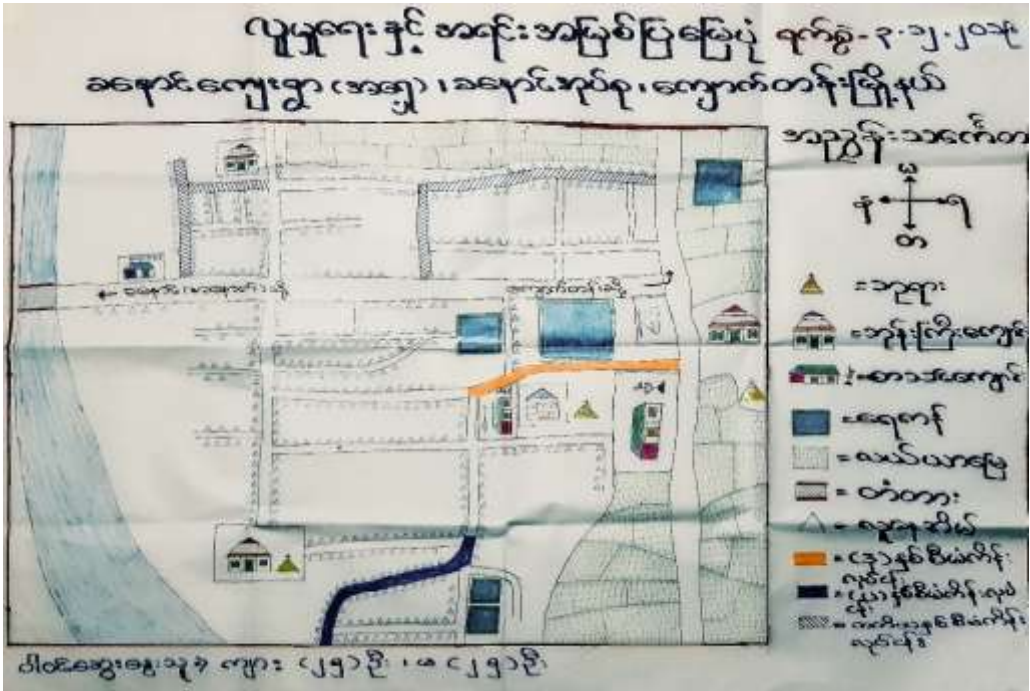 လူမှုရေးနှင့် အရင်းအမြစ်ပြမြေပုံ ရက်စွဲ-၃.၁၂.၂၀၁၉
ခနောင်ကျေးရွာ (အရှေ့)၊ ခနောင်အုပ်စု၊ ကျောက်တန်းမြို့နယ်
အညွှန်းသင်္ကေတ
မ
န
ရ
တ
=ဘုရား
=ဘုန်းကြီးကျောင်း
=စာသင်ကျောင်း
=ရေကန်
=လယ်ယာမြေ
= တံတား
= လူနေအိမ်
=(ဒု)နှစ်စီမံကိန်း
လုပ်ငန်း
နှစ်စီမံကိန်းလုပ်
ငန်း
နှစ်စီမံကိန်း
လုပ်ငန်း
ပါဝင်ဆွေးနွေးသူ ကျား (၂၅)ဦး၊ မ (၂၅)ဦး